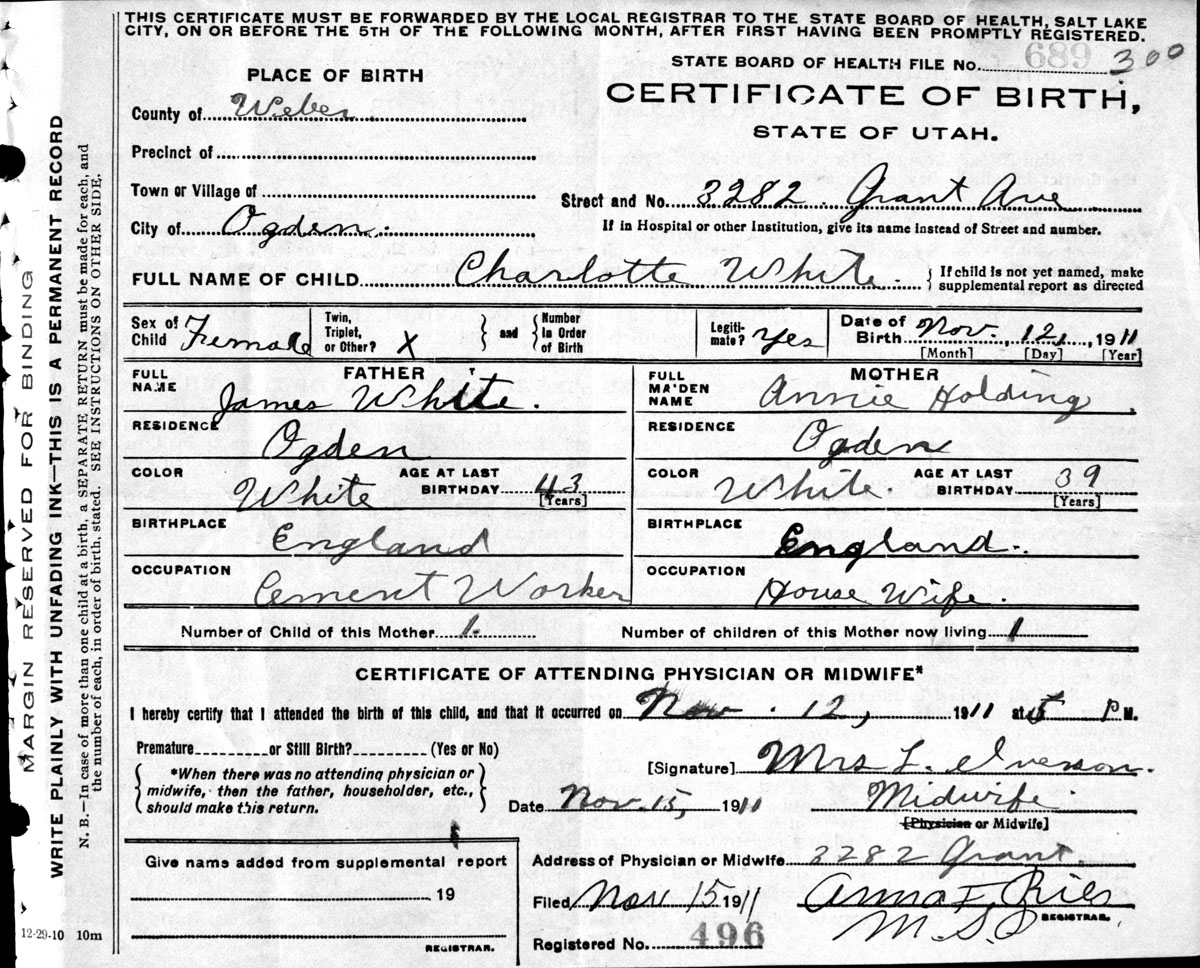 THIS CERTIFICATE MUST BE FORWARDED BY THE LOCAL REGISTRAR TO THE STATE BOARD OF HEALTH, SALT LAKE
CITY, ON OR BEFORE THE 5TH OF THE FOLLOWING MONTH, AFTER FIRST HAVING BEEN PROMPTLY REGISTERED.
STATE BOARD OF HEALTH FILE No. 689 300
PLACE OF BIRTH
CERTIFICATE OF BIRTH,
STATE OF UTAH.
County of Weber
Precinct of
Town or Village of
Street and No. 3282 Grant Ave
City of Ogden.
If in Hospital or other Institution, give its name instead of Street and number.
FULL NAME OF CHILD Charlotte White. { If child is not yet named, make
supplemental report as directed
Sex of Child Female Twin, Triplet, or Other? X } and { Number in Order of Birth Legiti-mate? Yes Date of Birth Nov. 12, 1911
[Month] [Day] [Year]
FATHER MOTHER
FULL NAME James White. FULL MAIDEN NAME Annie Holding
RESIDENCE Ogden RESIDENCE Ogden
COLOR White AGE AT LAST BIRTHDAY 43 [Years] COLOR White. AGE AT LAST BIRTHDAY 39 [Years]
BIRTHPLACE England BIRTHPLACE England.
OCCUPATION Cement Worker OCCUPATION House Wife.
Number of Child of this Mother 1 Number of children of this Mother now living 1
CERTIFICATE OF ATTENDING PHYSICIAN OR MIDWIFE*
I hereby certify that I attended the birth of this child, and that it occurred on Nov. 12, 1911 at 5 P M.
Premature or Still Birth? (Yes or No)
[Signature] Mrs L. Iverson.
{ *When there was no attending physician or
midwife, then the father, householder, etc.,
should make this return. }
Date Nov. 15, 1911 Midwife.
[Physician or Midwife]
Give name added from supplemental report
19
REGISTRAR.
Address of Physician or Midwife 3282 Grant.
Filed Nov 15 1911 Anna F. Ries
REGISTRAR.
Registered No. 496
12-29-10 10m
MARGIN RESERVED FOR BINDING
WRITE PLAINLY WITH UNFADING INK—THIS IS A PERMANENT RECORD
N. B.—In case of more than one child at a birth, a SEPARATE RETURN must be made for each, and
the number of each, in order of birth, stated. SEE INSTRUCTIONS ON OTHER SIDE.